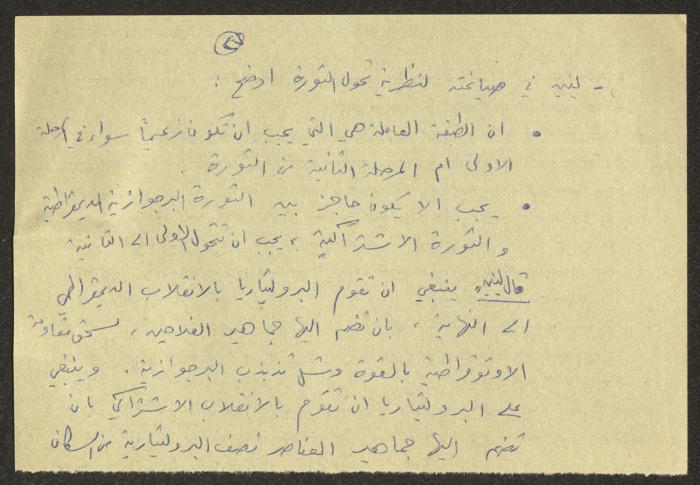 - لينين في صياغته لنظرية تحول الثورة اوضح :
• ان الطبقة العاملة هي التي يجب ان تكون زعيماً سواء في المرحلة
الاولى ام المرحلة الثانية من الثورة .
• يجب الا يكون حاجز بين الثورة البرجوازية الديمقراطية
والثورة الاشتراكية ، يجب ان تتحول الاولى الى الثانية
قال لينين ينبغي ان تقوم البروليتاريا بالانقلاب الديمقراطي
الى النهاية ، بان تضم اليها جماهير الفلاحين ، لسحق مقاومة
الاوتوقراطية بالقوة وشل تذبذب البرجوازية . وينبغي
على البروليتاريا ان تقوم بالانقلاب الاشتراكي بان
تضم اليها جماهير العناصر نصف البروليتارية من السكان